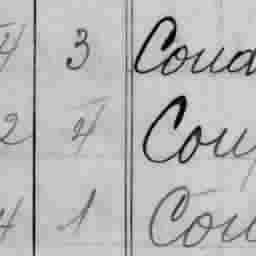 4 3 Coud
2 4 Coup
4 1 Cou